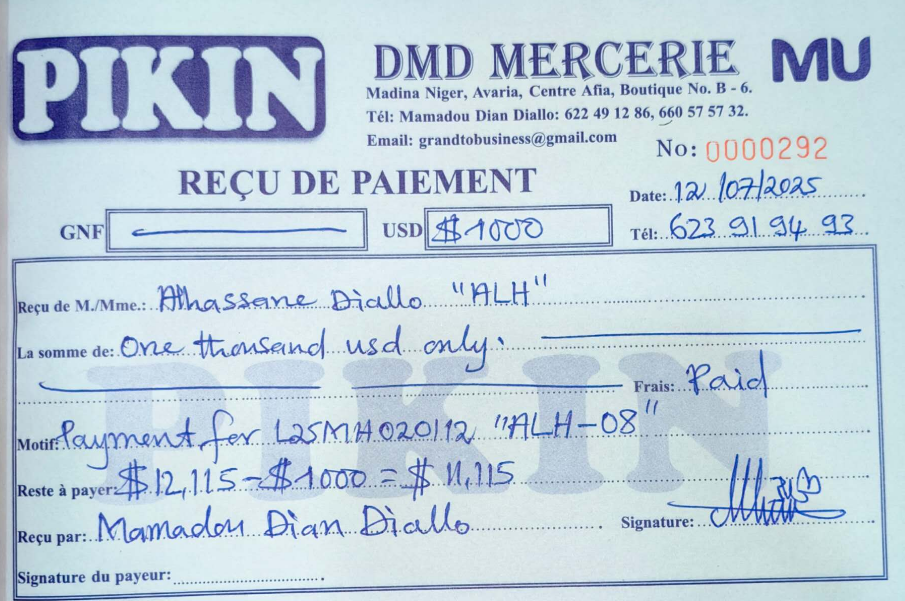 PIKIN
DMD MERCERIE
MU
Madina Niger, Avaria, Centre Afia, Boutique No. B - 6.
Tél: Mamadou Dian Diallo: 622 49 12 86, 660 57 57 32.
Email: grandtobusiness@gmail.com
No: 0000292
REÇU DE PAIEMENT
Date: 12/07/2025
GNF
USD $1000
Tél: 623 91 94 93
Reçu de M./Mme.: Alhassane Diallo "ALH"
La somme de: One thousand usd only.
Frais: Paid
Motif: Payment for L25MH020112 "ALH-08"
Reste à payer: $12,115 - $1000 = $11,115
Reçu par: Mamadou Dian Diallo
Signature:
Signature du payeur:
PIKIN